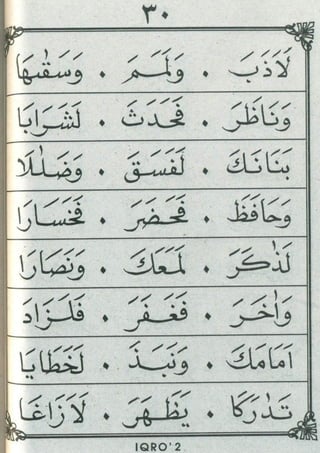 ٣٠
لَاَذَبَ • وَلَمَمَ • وَسَقٰىهَا
وَنَاظَرَ • فَحَدَثَ • لَشَرَابَا
بَنَانَكَ • لَفَسَقَ • وَضَلٰلًا
وَحَافَظَ • فَحَضَرَ • فَخَسَارَا
لَذٰكَرَ • لَمَعَكَ • وَنَصَارَا
وَاٰخَرَ • فَغَفَرَ • فَلَزَادَ
اَمَامَكَ • وَنَبَذَ • لَخَطَايَا
تَدٰرَكَا • يَظْهَرَ • لَازَاغَا
IQRO'2